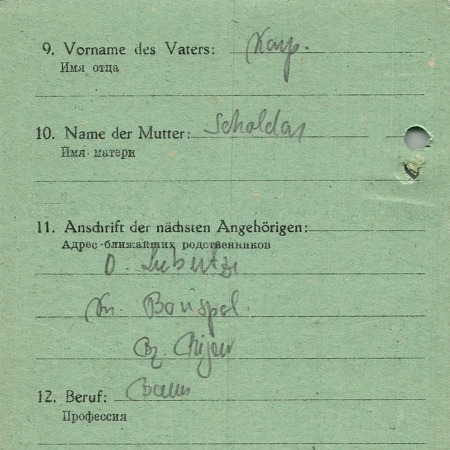 9. Vorname des Vaters: Karp.
Имя отца
10. Name der Mutter: Scholdas
Имя матери
11. Anschrift der nächsten Angehörigen:
Адрес ближайших родственников
D.
Kr. Borispol.
Bz. Kijew
12. Beruf:
Профессия